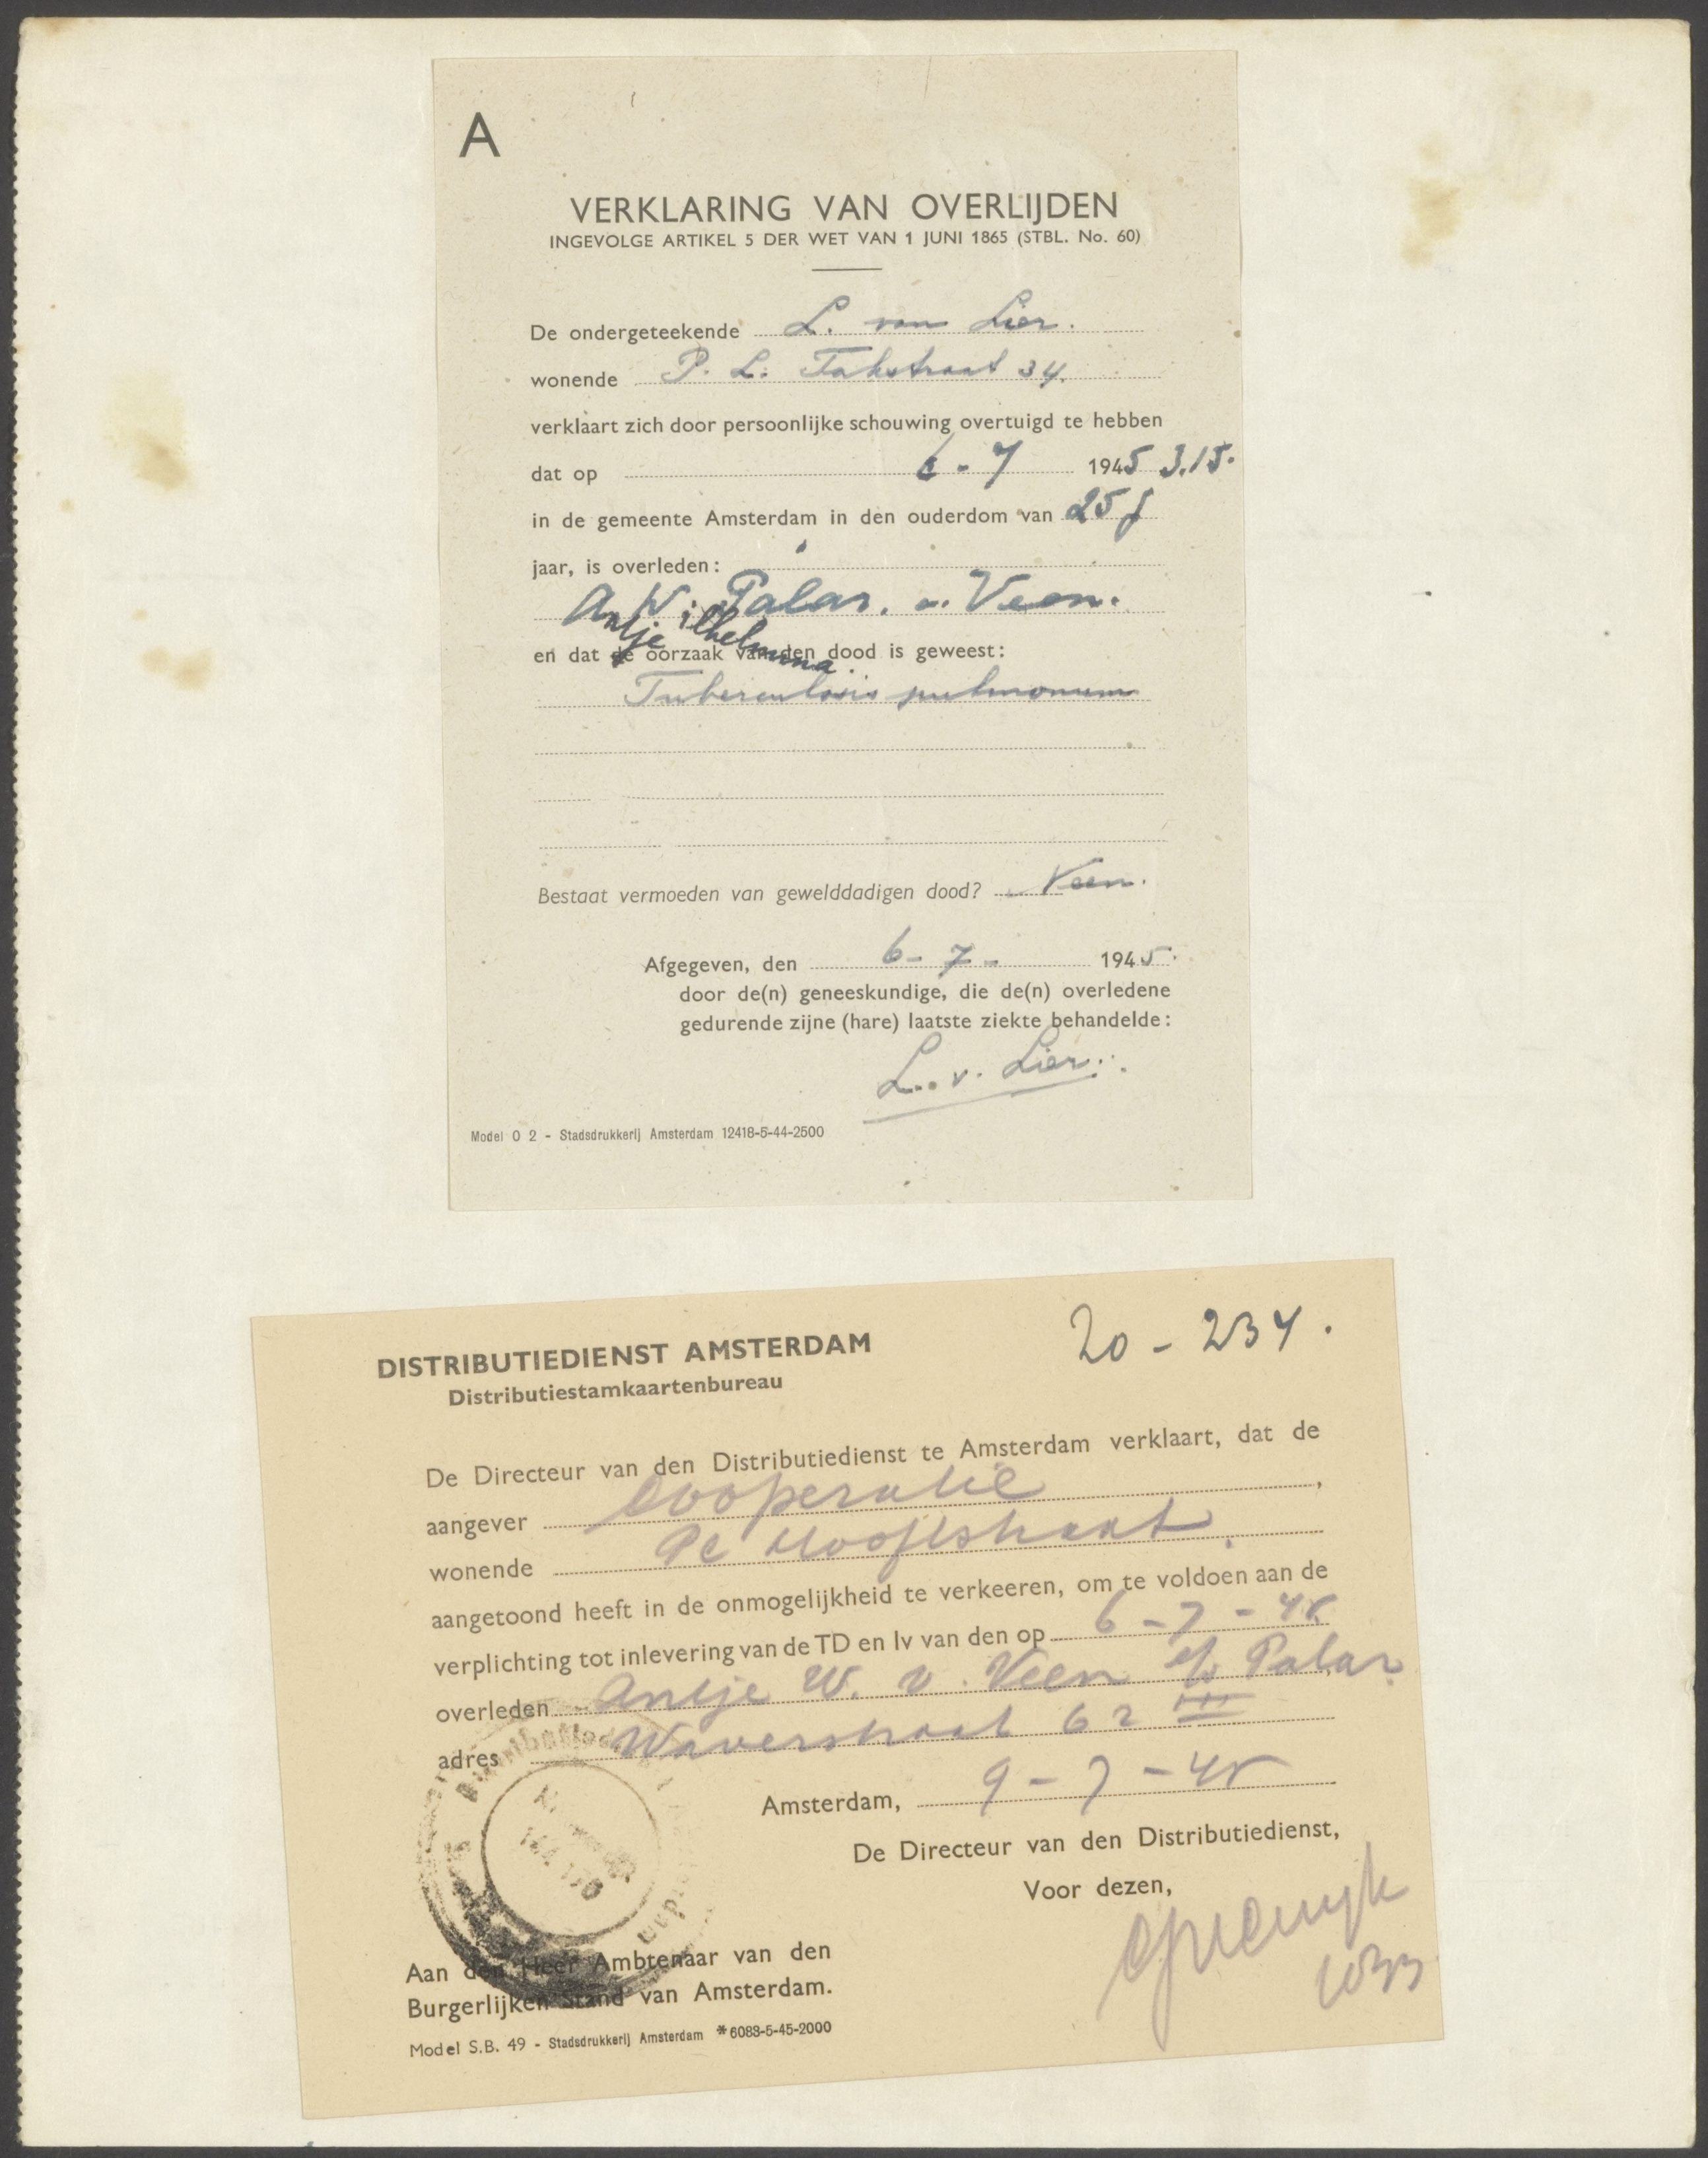 A
VERKLARING VAN OVERLIJDEN
INGEVOLGE ARTIKEL 5 DER WET VAN 1 JUNI 1865 (STBL. No. 60)
De ondergeteekende L. van Lier.
wonende P. L. Takstraat 34.
verklaart zich door persoonlijke schouwing overtuigd te hebben
dat op 6 - 7 1945 3.15.
in de gemeente Amsterdam in den ouderdom van 25 j
jaar, is overleden:
A. W. Palar. v. Veen.
Antje Wilhelmina
en dat de oorzaak van den dood is geweest:
Tuberculosis pulmonum
Bestaat vermoeden van gewelddadigen dood? Neen.
Afgegeven, den 6 - 7 - 1945.
door de(n) geneeskundige, die de(n) overledene
gedurende zijne (hare) laatste ziekte behandelde:
L. v. Lier.
Model O 2 - Stadsdrukkerij Amsterdam 12418-5-44-2500
20 - 234.
DISTRIBUTIEDIENST AMSTERDAM
Distributiestamkaartenbureau
De Directeur van den Distributiedienst te Amsterdam verklaart, dat de
aangever Cooperatie,
wonende Pc Hooftstraat
aangetoond heeft in de onmogelijkheid te verkeeren, om te voldoen aan de
verplichting tot inlevering van de TD en Iv van den op 6 - 7 - 45
overleden Antje W. v. Veen e/v Palar
adres Waverstraat 62 III
Amsterdam, 9 - 7 - 45
De Directeur van den Distributiedienst,
Voor dezen,
Aan den Heer Ambtenaar van den
Burgerlijken Stand van Amsterdam.
Model S.B. 49 - Stadsdrukkerij Amsterdam *6088-5-45-2000